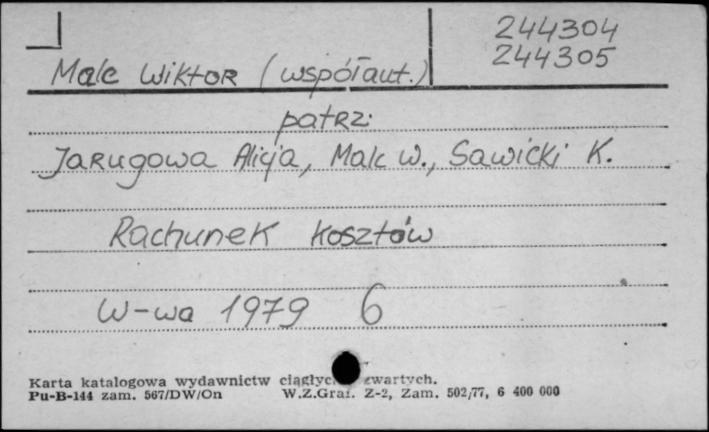 244304
244305
Malc Wiktor (współaut.)
patrz:
Jarugowa Alicja, Malc W., Sawicki K.
Rachunek kosztów
W-wa 1979 6
Karta katalogowa wydawnictw ciągłyc zwartych.
Pu-B-144 zam. 567/DW/On W.Z.Graf. Z-2, Zam. 502/77, 6 400 000